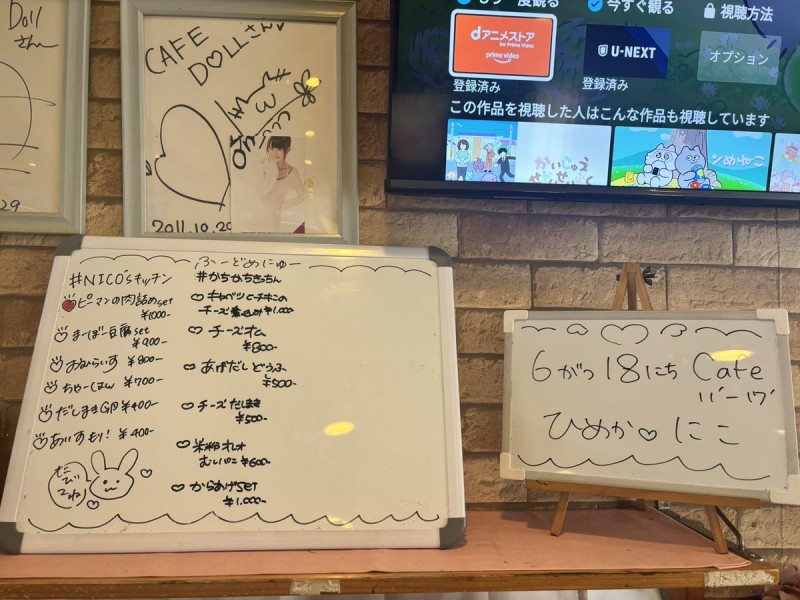 Doll
さん
29
CAFE
DOLLさん
2011.10.29
もう一度観る
今すぐ観る
視聴方法
dアニメストア
for Prime Video
prime video
U-NEXT
オプション
登録済み
登録済み
この作品を視聴した人はこんな作品も視聴しています
かいじゅう
ふーどめにゅー
#NICO'sキッチン
ピーマンの肉詰めset
¥1000-
まーぼー豆腐set
¥900-
おむらいす ¥800-
ちゃーはん ¥700-
だしまきGP ¥400-
あいすもり! ¥400-
#かちかちきっちん
キャベツとチキンの
チーズ煮込み ¥1.000
チーズオム
¥800-
あげだしどうふ
¥500-
チーズだしまき
¥500-
米粉オレオ
むしパン ¥600-
からあげSET
¥1.000-
6がつ18にち Cafe
ひめか♡にこ